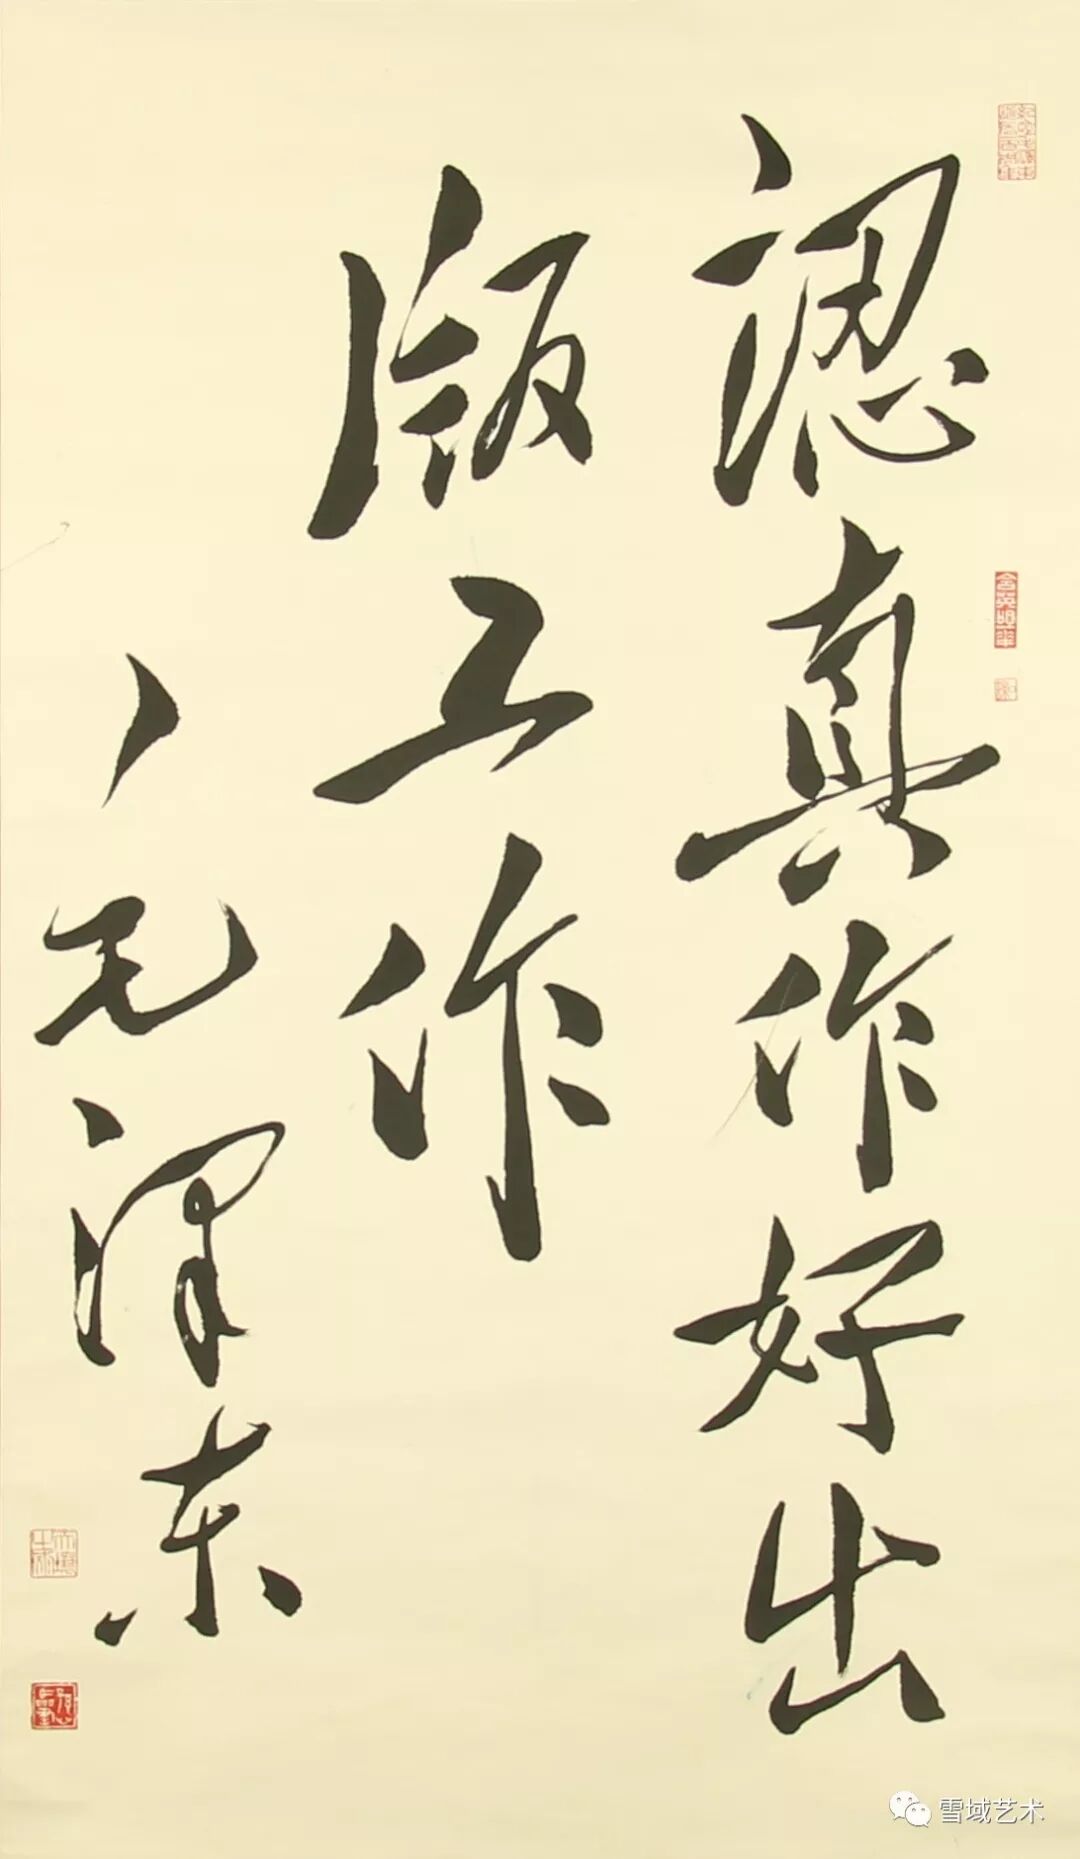 認真作好出
版工作
毛澤东
雪域艺术